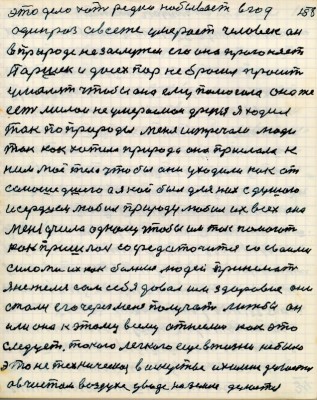 это дело хоть редко но бывает в год 158
один раз а всегде умерает человек он
в природе не заслужен его она прогоняет
Паршек и до сих пор не бросил просит
умоляет чтобы она ему помогала она же
есть милои не умераемои друзья я ходил
так по природы меня встречали люди
так как хотела природа она прислала к
ним мое тело чтобы они уходили как от
сумашедшего а я кой был для них с душою
и сердцем любил природу любил их всех она
меня учила одному чтобы им так помогать
как пришлось сосредоточится со своими
силами их как больных людей принимать
я нежели сам себя довал им здоровие они
стали его через меня получать лижбы он
или она к этому всему отнеслись как это
следует. такого легкого еще в жизни небыло
это не техническая в искустве химии делается
а в чистом воздухе, в воде, на земле делается